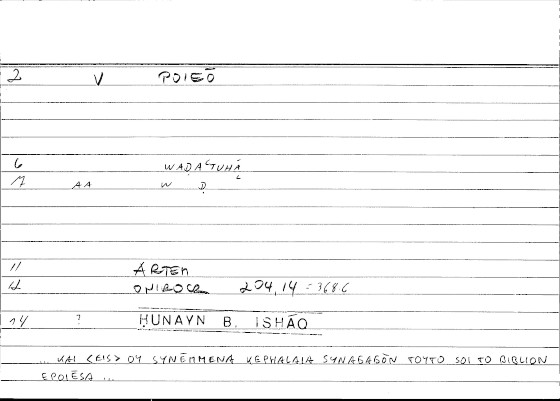 2 V POIEŌ
6 WAḌAʿTUHĀ
7 AA W Ḍ
11 ARTEM
12 ONIROCR 204,14 = 3686
14 ? ḤUNAYN B. ISḤĀQ
... KAI <EIS> OY SYNĒMMENA KEPHALAIA SYNAGAGŌN TOYTO SOI TO BIBLION
EPOIĒSA ...